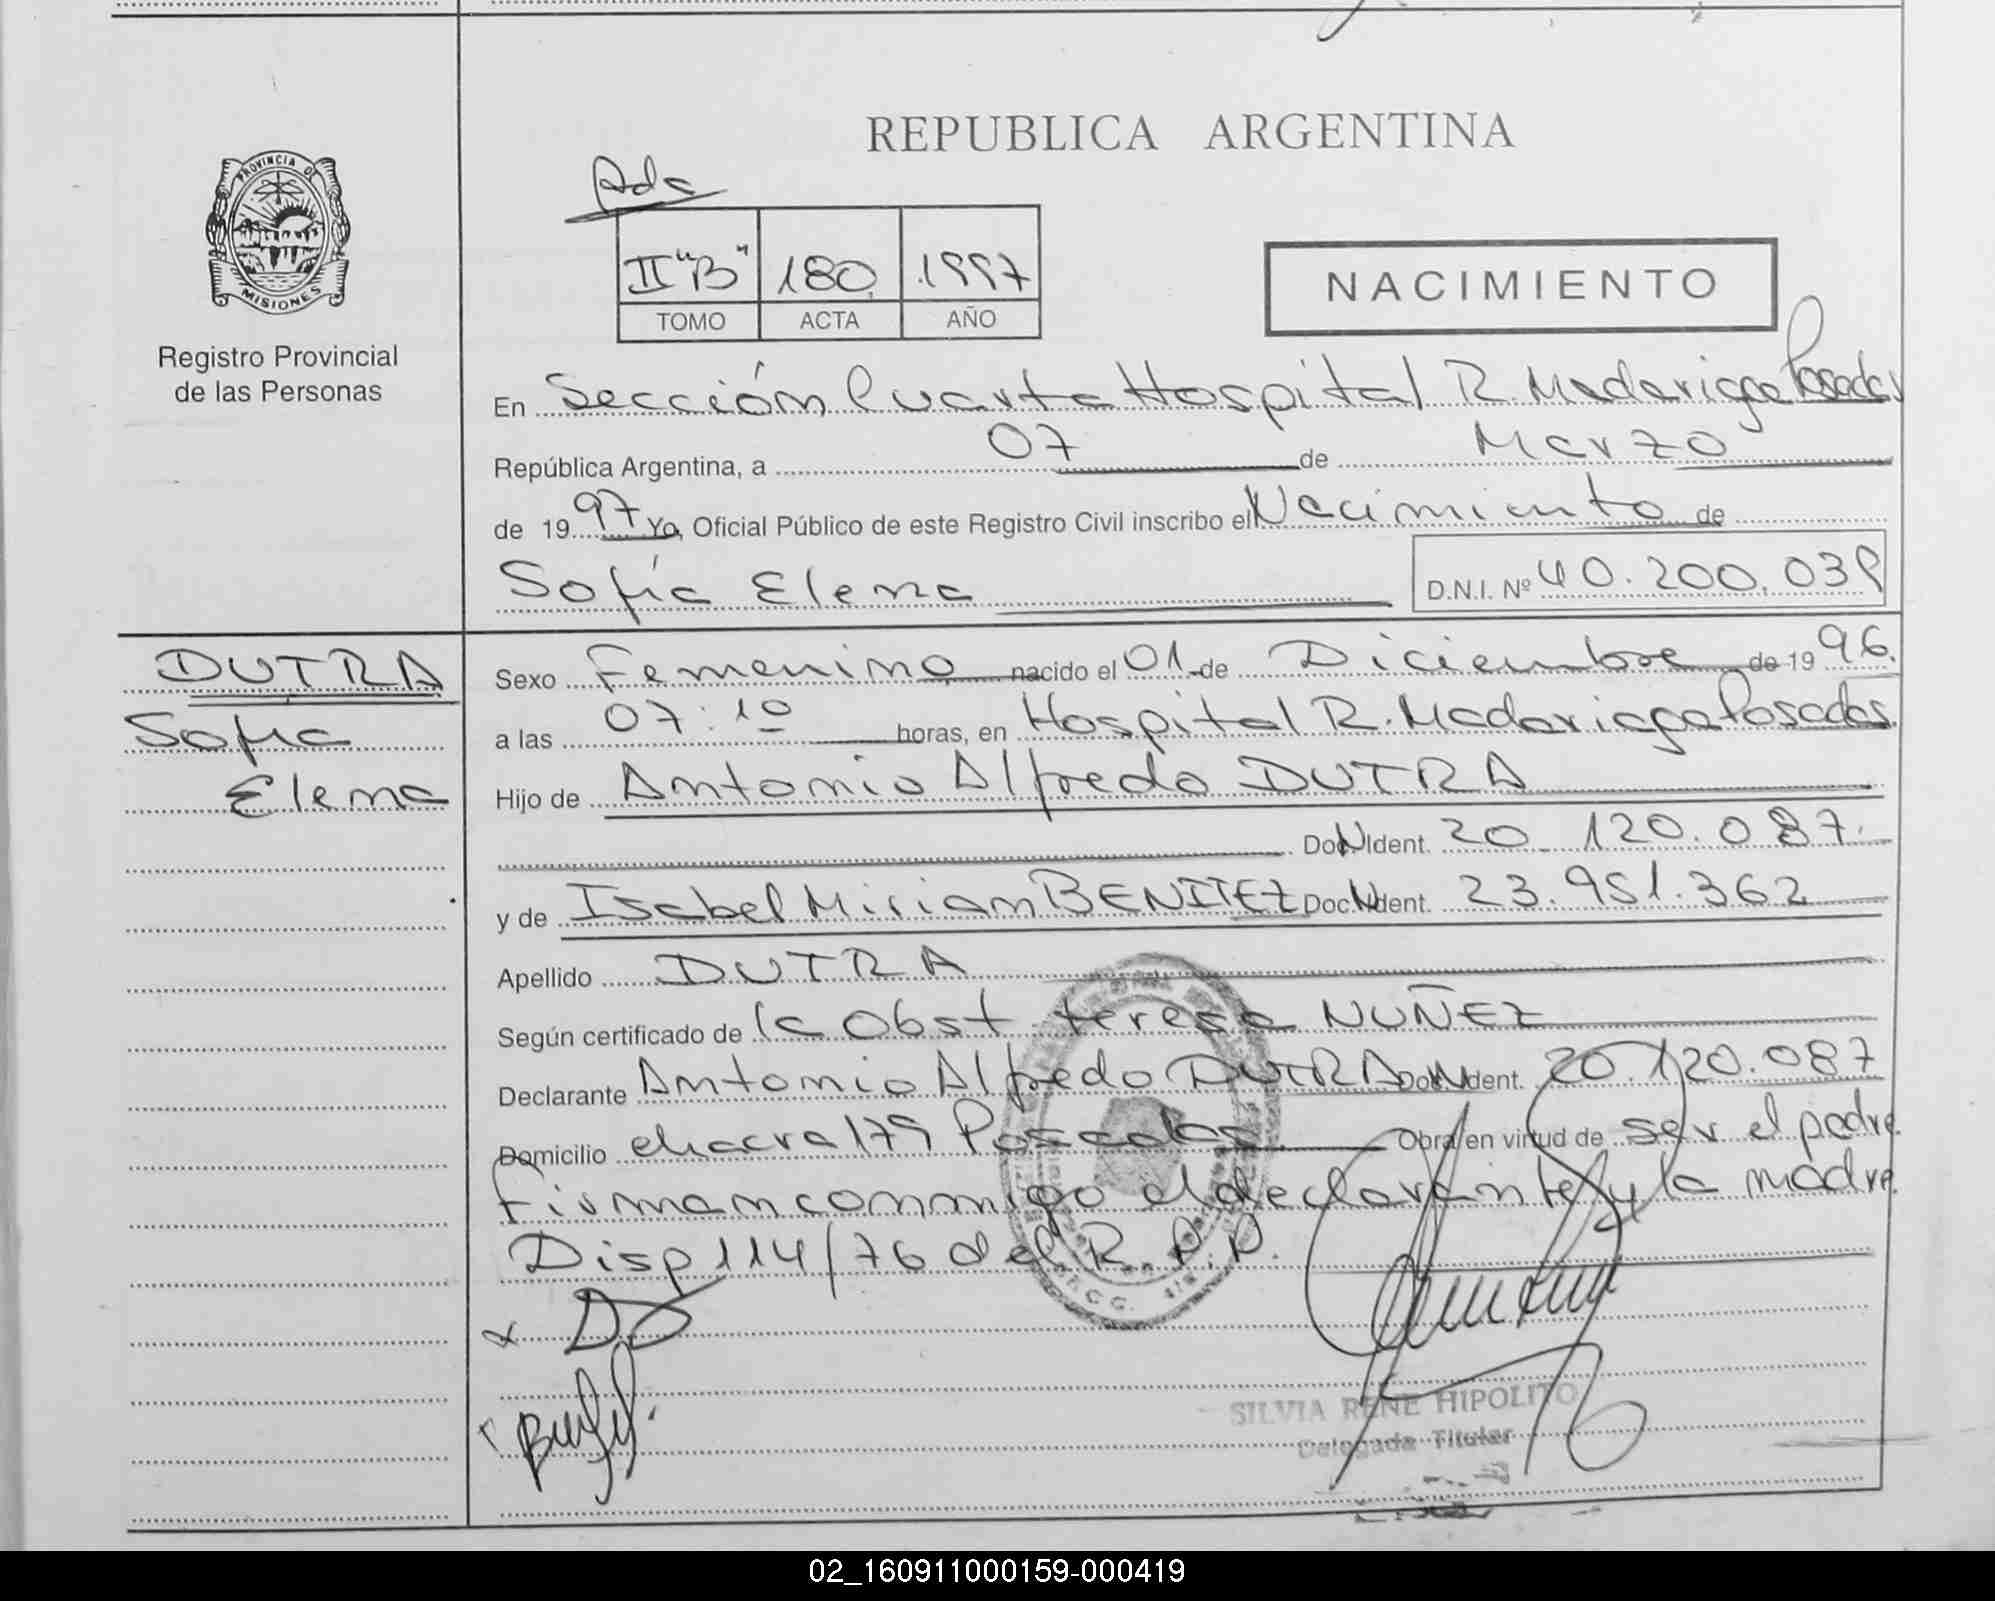 REPUBLICA ARGENTINA
PROVINCIA DE
MISIONES
Registro Provincial
de las Personas
II "B" 180 1997
TOMO ACTA AÑO
NACIMIENTO
En Sección Cuarta Hospital R. Madariaga Posadas
República Argentina, a 07 de Marzo
de 1997 Yo, Oficial Público de este Registro Civil inscribo el Nacimiento de
Sofía Elena D.N.I. Nº 40.200.038
DUTRA
Sofia
Elena
Sexo Femenino nacido el 01 de Diciembre de 1996.
a las 07:10 horas, en Hospital R. Madariaga Posadas
Hijo de Antonio Alfredo DUTRA
Ident. 20.120.087.
y de Isabel Miriam BENITEZ Doc. Ident. 23.951.362
Apellido DUTRA
Según certificado de la Obst teresa NUÑEZ
Declarante Antonio Alfredo DUTRA Ident. 20.120.087
Domicilio chacra 179 Posadas Obra en virtud de ser el padre
Firman conmigo el declarante y la madre
Disp 114/76 del R.P.P.
SILVIA RENE HIPOLITO
Delegada Titular
02_160911000159-000419